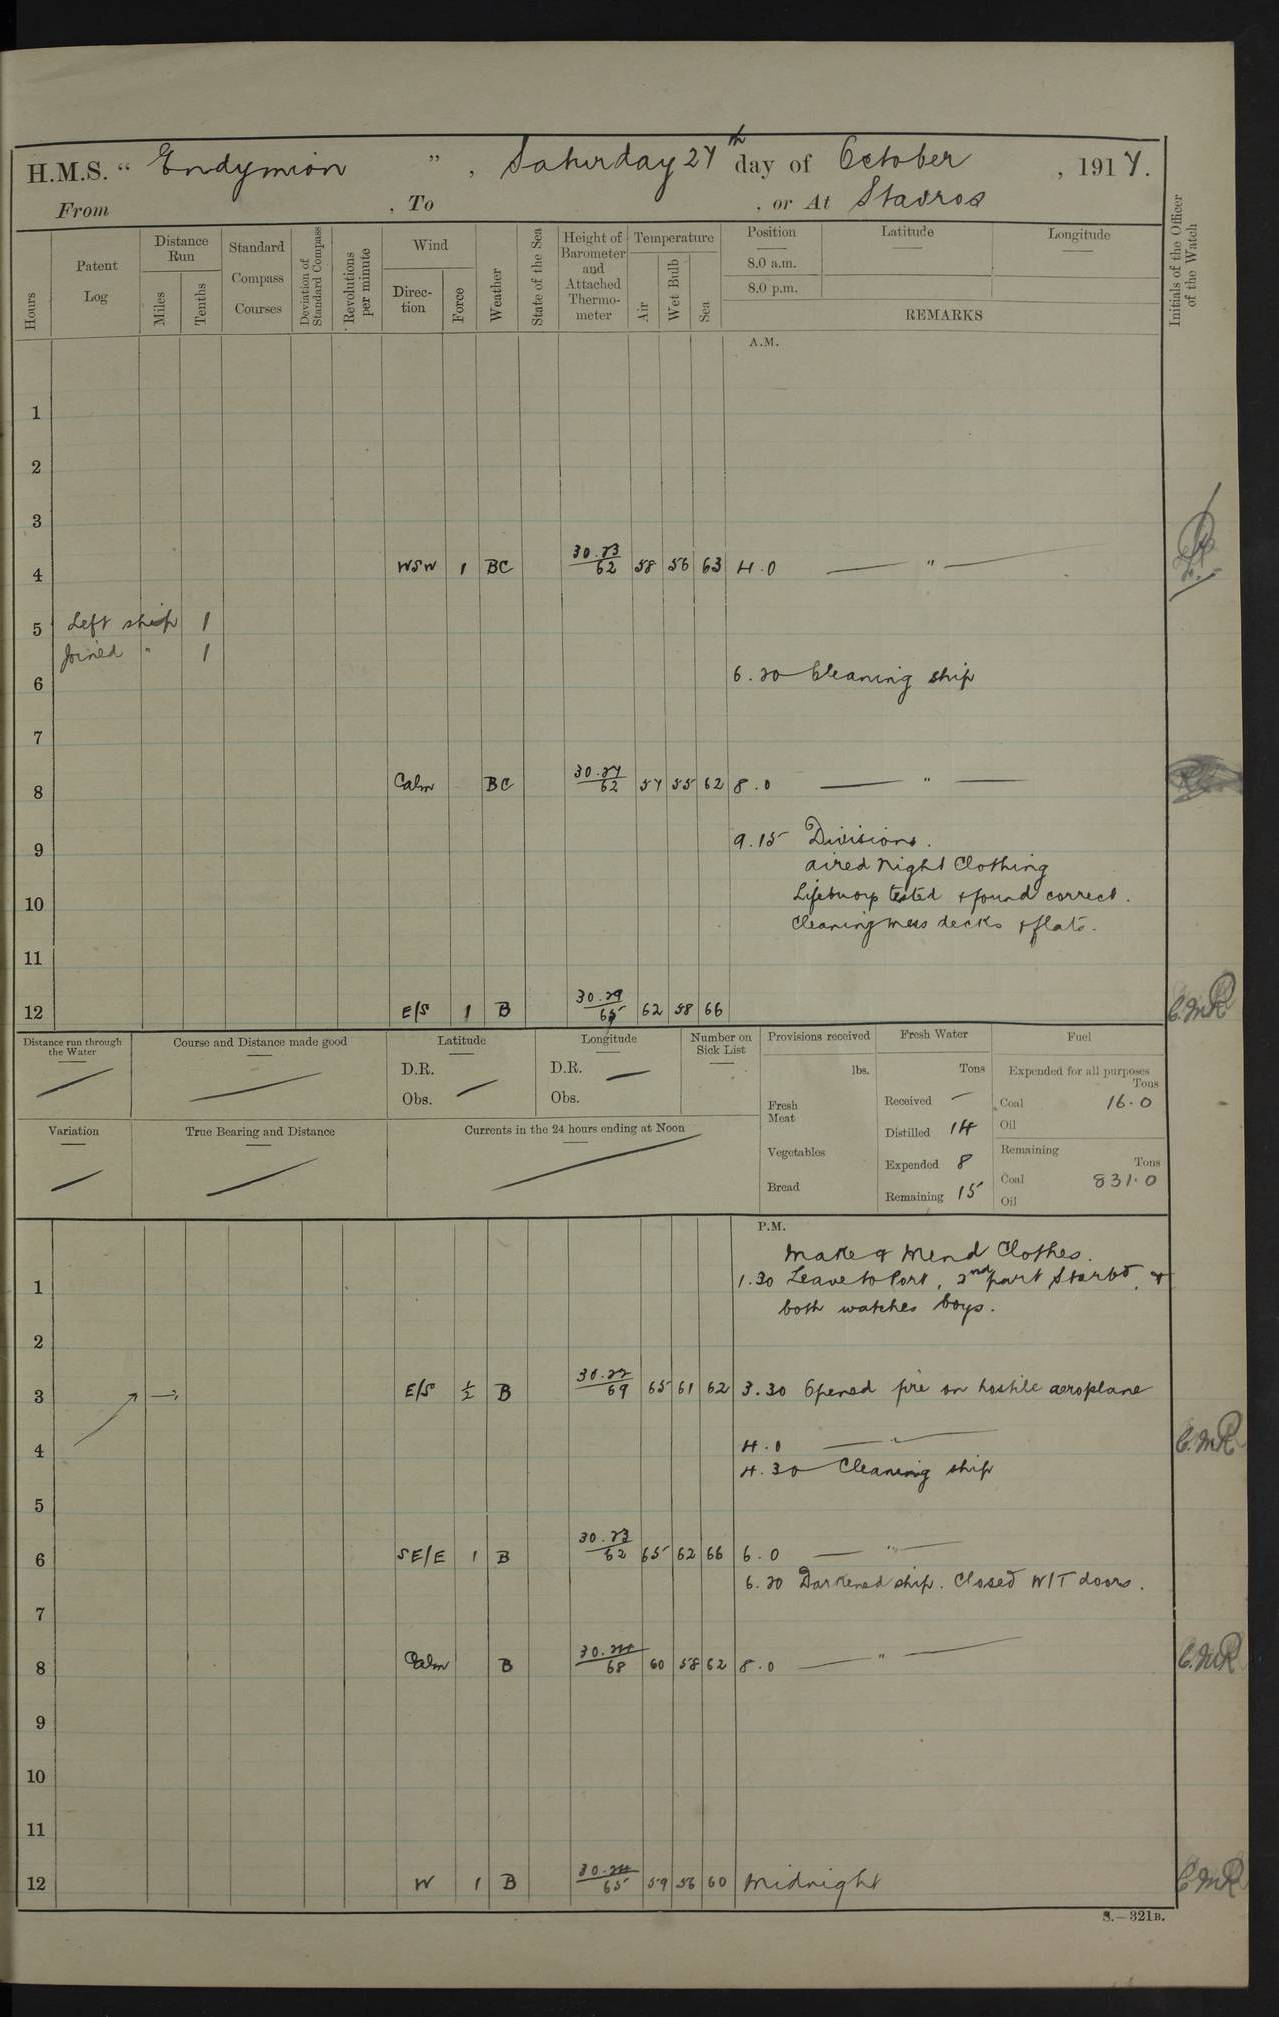 H.M.S. " Endymion ", Saturday 27th day of October, 1917.
From , To , or At Stavros
Hours
Patent Log
Distance Run
Miles
Tenths
Standard Compass Courses
Deviation of Standard Compass
Revolutions per minute
Wind
Direction
Force
Weather
State of the Sea
Height of Barometer and Attached Thermometer
Temperature
Air
Wet Bulb
Sea
Position
8.0 a.m.
8.0 p.m.
Latitude
Longitude
REMARKS
Initials of the Officer of the Watch
A.M.
1
2
3
4 WSW 1 BC 30.23/62 58 56 63 4.0 — " —
5 Left ship 1
Joined " 1
6 6.20 Cleaning ship
7
8 Calm BC 30.27/62 57 55 62 8.0 — " —
9 9.15 Divisions.
aired Night Clothing
10 Lifebuoys tested & found correct.
Cleaning mess decks & flats.
11
12 E/S 1 B 30.29/65 62 58 66 C.M.R
Distance run through the Water
Course and Distance made good
Latitude
D.R.
Obs.
Longitude
D.R.
Obs.
Number on Sick List
Provisions received
lbs.
Fresh Meat
Vegetables
Bread
Fresh Water
Tons
Received —
Distilled 14
Expended 8
Remaining 15
Fuel
Expended for all purposes
Tons
Coal 16.0
Oil
Remaining
Tons
Coal 831.0
Oil
Variation
True Bearing and Distance
Currents in the 24 hours ending at Noon
P.M.
Make & Mend Clothes.
1 1.30 Leave to Port, 2nd part Starbd, &
both watches boys.
2
3 E/S ½ B 30.22/69 65 61 62 3.30 Opened fire on hostile aeroplane
4 4.0 — " — C.M.R
4.30 Cleaning ship
5
6 SE/E 1 B 30.23/62 65 62 66 6.0 — " —
6.20 Darkened ship. Closed W/T doors.
7
8 Calm B 30.24/68 60 58 62 8.0 — " — C.M.R
9
10
11
12 W 1 B 30.24/65 59 56 60 Midnight C.M.R
S.—321B.